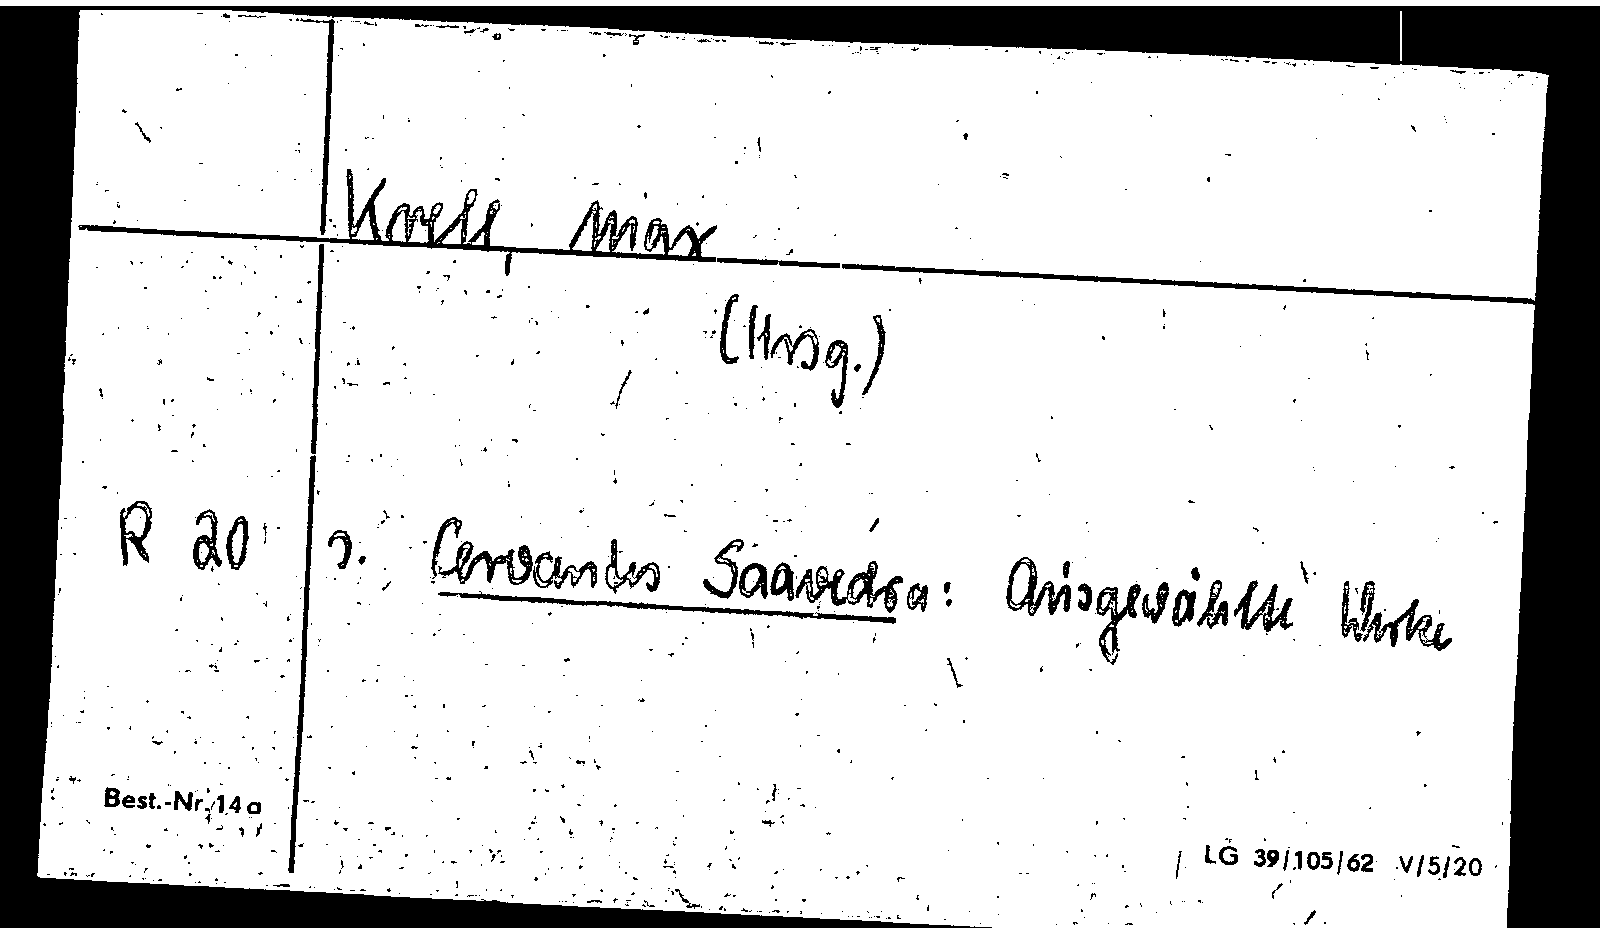 Krell, Max
(Hrsg.)
R 20 s. Cervantes Saavedra: Ausgewählte Werke
Best.-Nr. 14a
LG 39/105/62 V/5/20